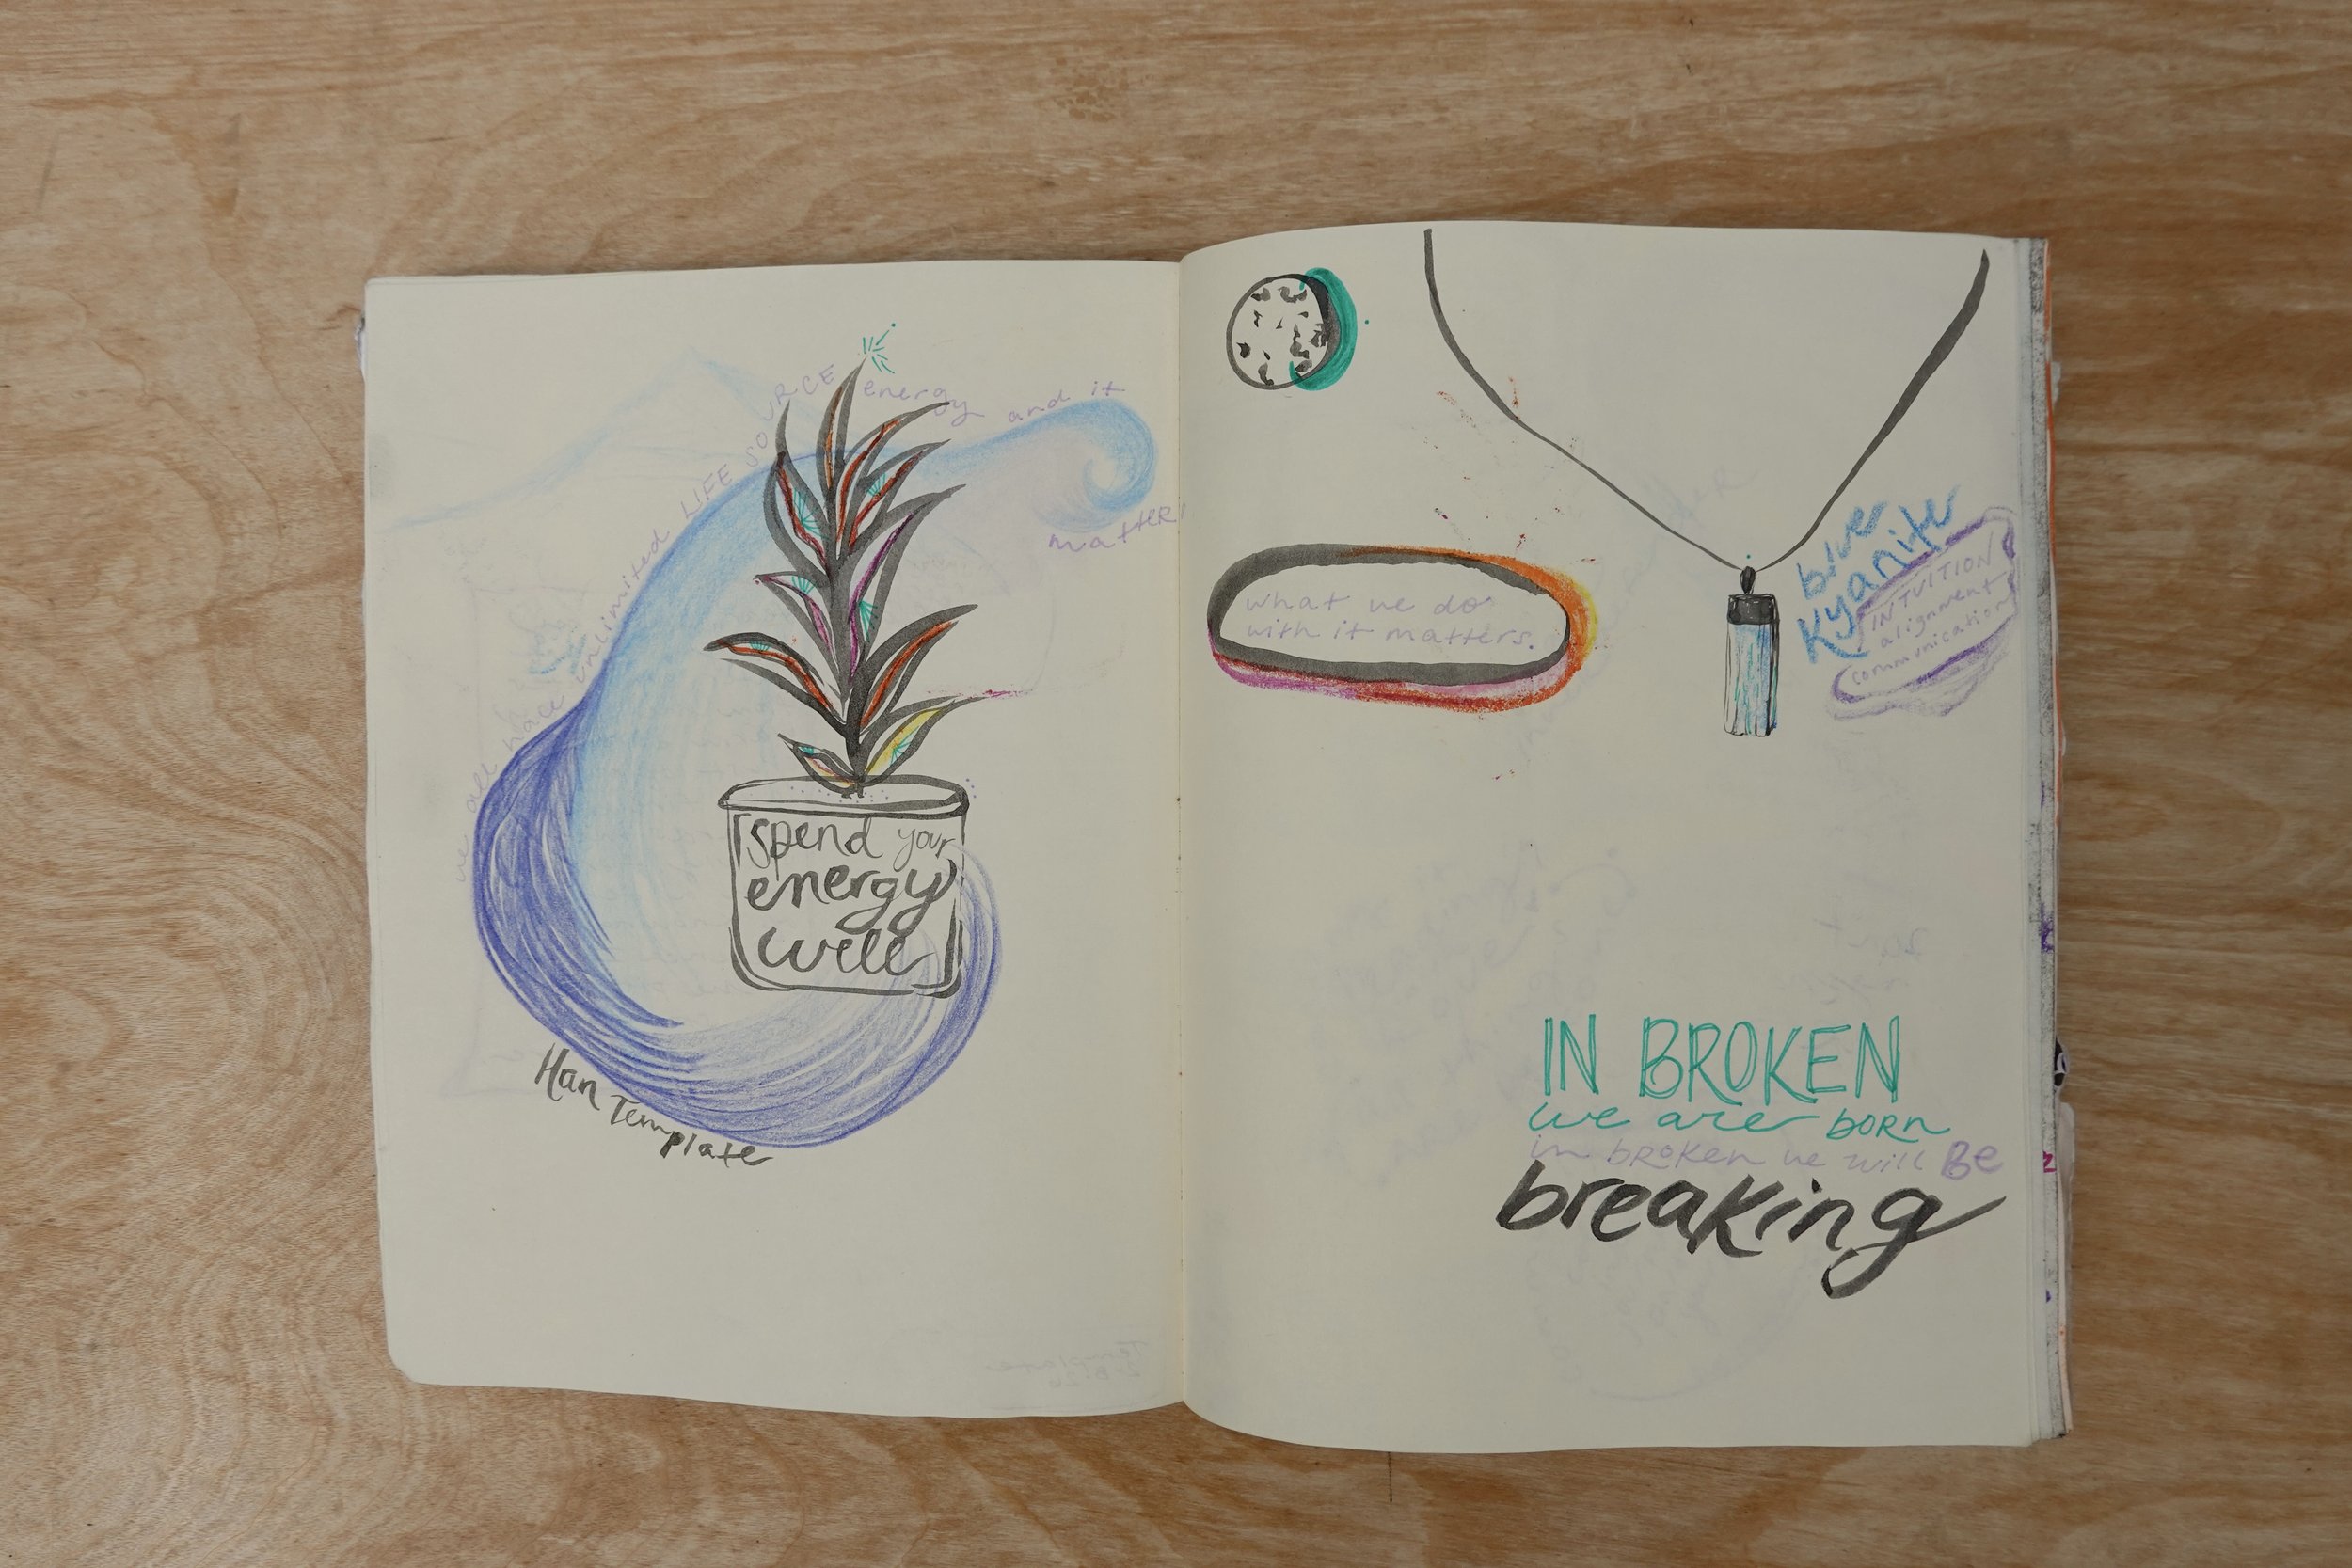 we all have unlimited LIFE SOURCE energy and it
matter
spend your
energy
well
Han Template
what we do
with it matters.
blue
Kyanite
INTUITION
alignment
communication
IN BROKEN
we are born
in broken we will Be
breaking